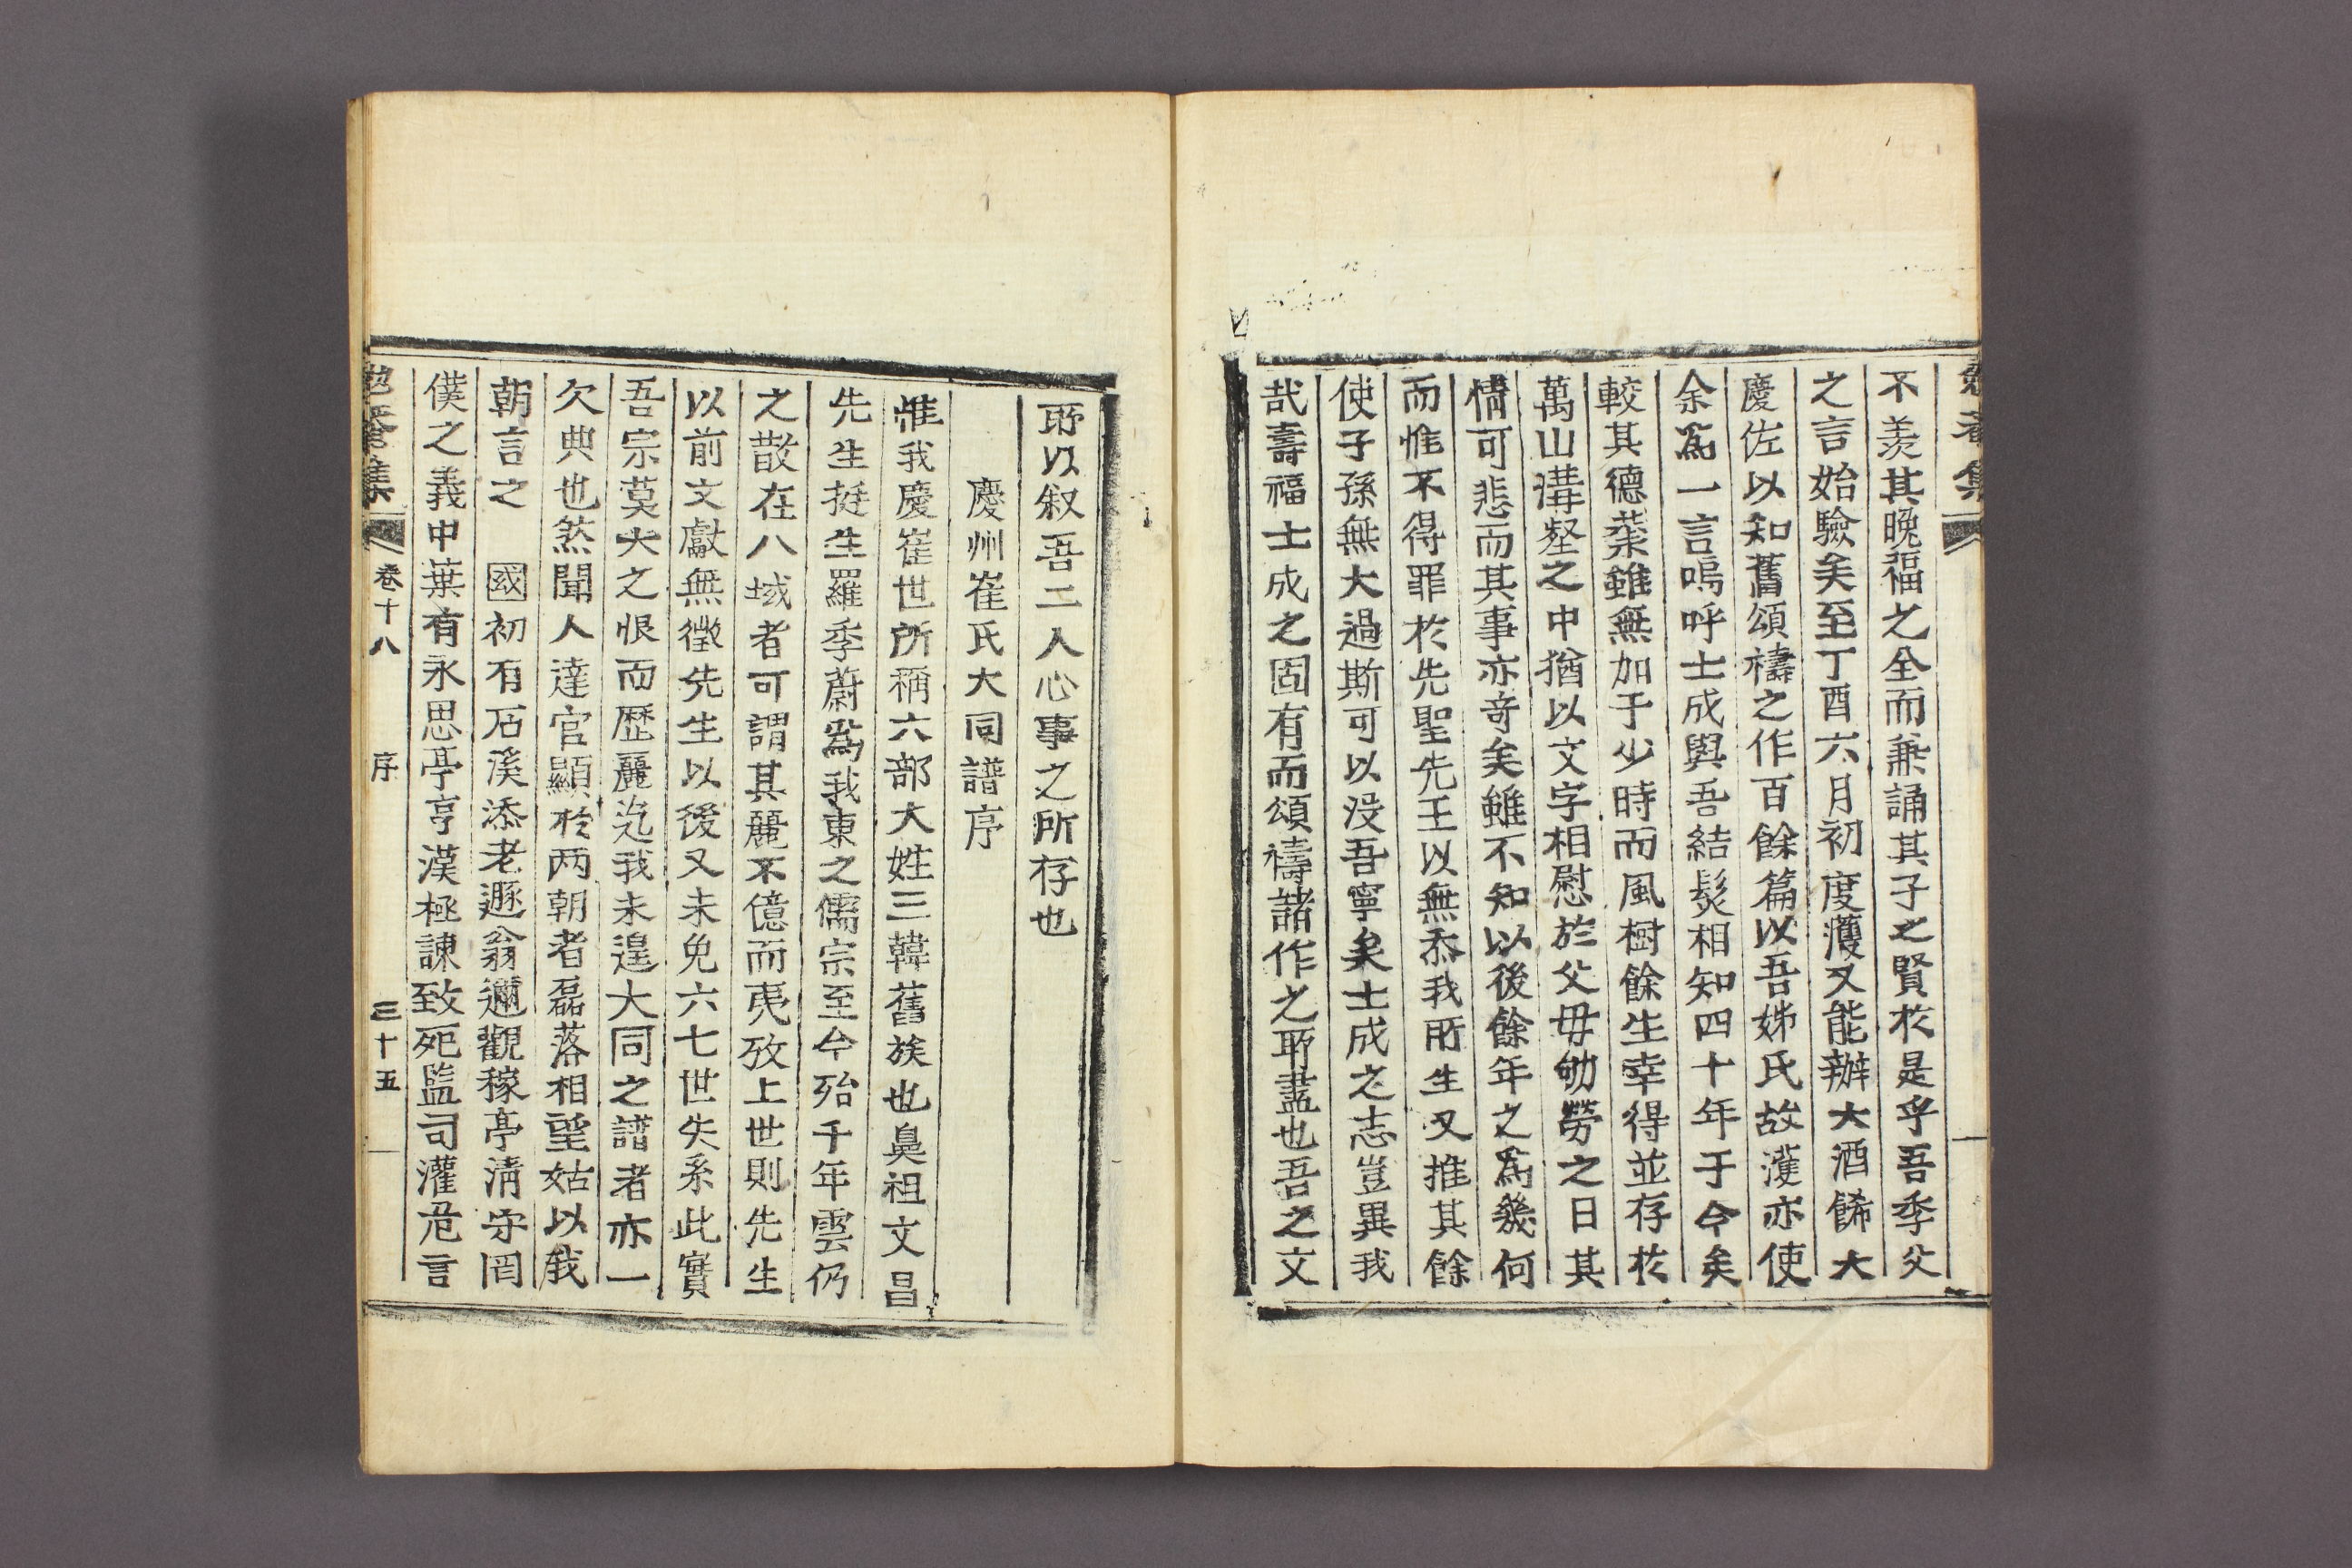 不羨其晚福之全而兼誦其子之賢於是乎吾季父
之言始驗矣至丁酉六月初度濩又能辦大酒餙大
慶佐以知舊頌禱之作百餘篇以吾姊氏故濩亦使
余爲一言嗚呼士成與吾結髮相知四十年于今矣
較其德業雖無加于少時而風樹餘生幸得並存於
萬山溝壑之中猶以文字相慰於父母劬勞之日其
情可悲而其事亦奇矣雖不知以後餘年之爲幾何
而惟不得罪於先聖先王以無忝我所生又推其餘
使子孫無大過斯可以没吾寧矣士成之志豈異我
哉壽福士成之固有而頌禱諸作之耶盡也吾之文
耶以叙吾二人心事之所存也
慶州崔氏大同譜序
惟我慶崔世所稱六部大姓三韓舊族也鼻祖文昌
先生挺生羅季蔚爲我東之儒宗至今殆千年雲仍
之散在八域者可謂其麗不億而夷攷上世則先生
以前文獻無徵先生以後又未免六七世失系此實
吾宗莫大之恨而歷麗迄我未遑大同之譜者亦一
欠典也然聞人達官顯於两朝者磊落相望姑以我
朝言之 國初有石溪添老遯翁邇觀稼亭淸守罔
僕之義中葉有永思亭亨漢極諫致死監司灌危言
卷十八 序 三十五